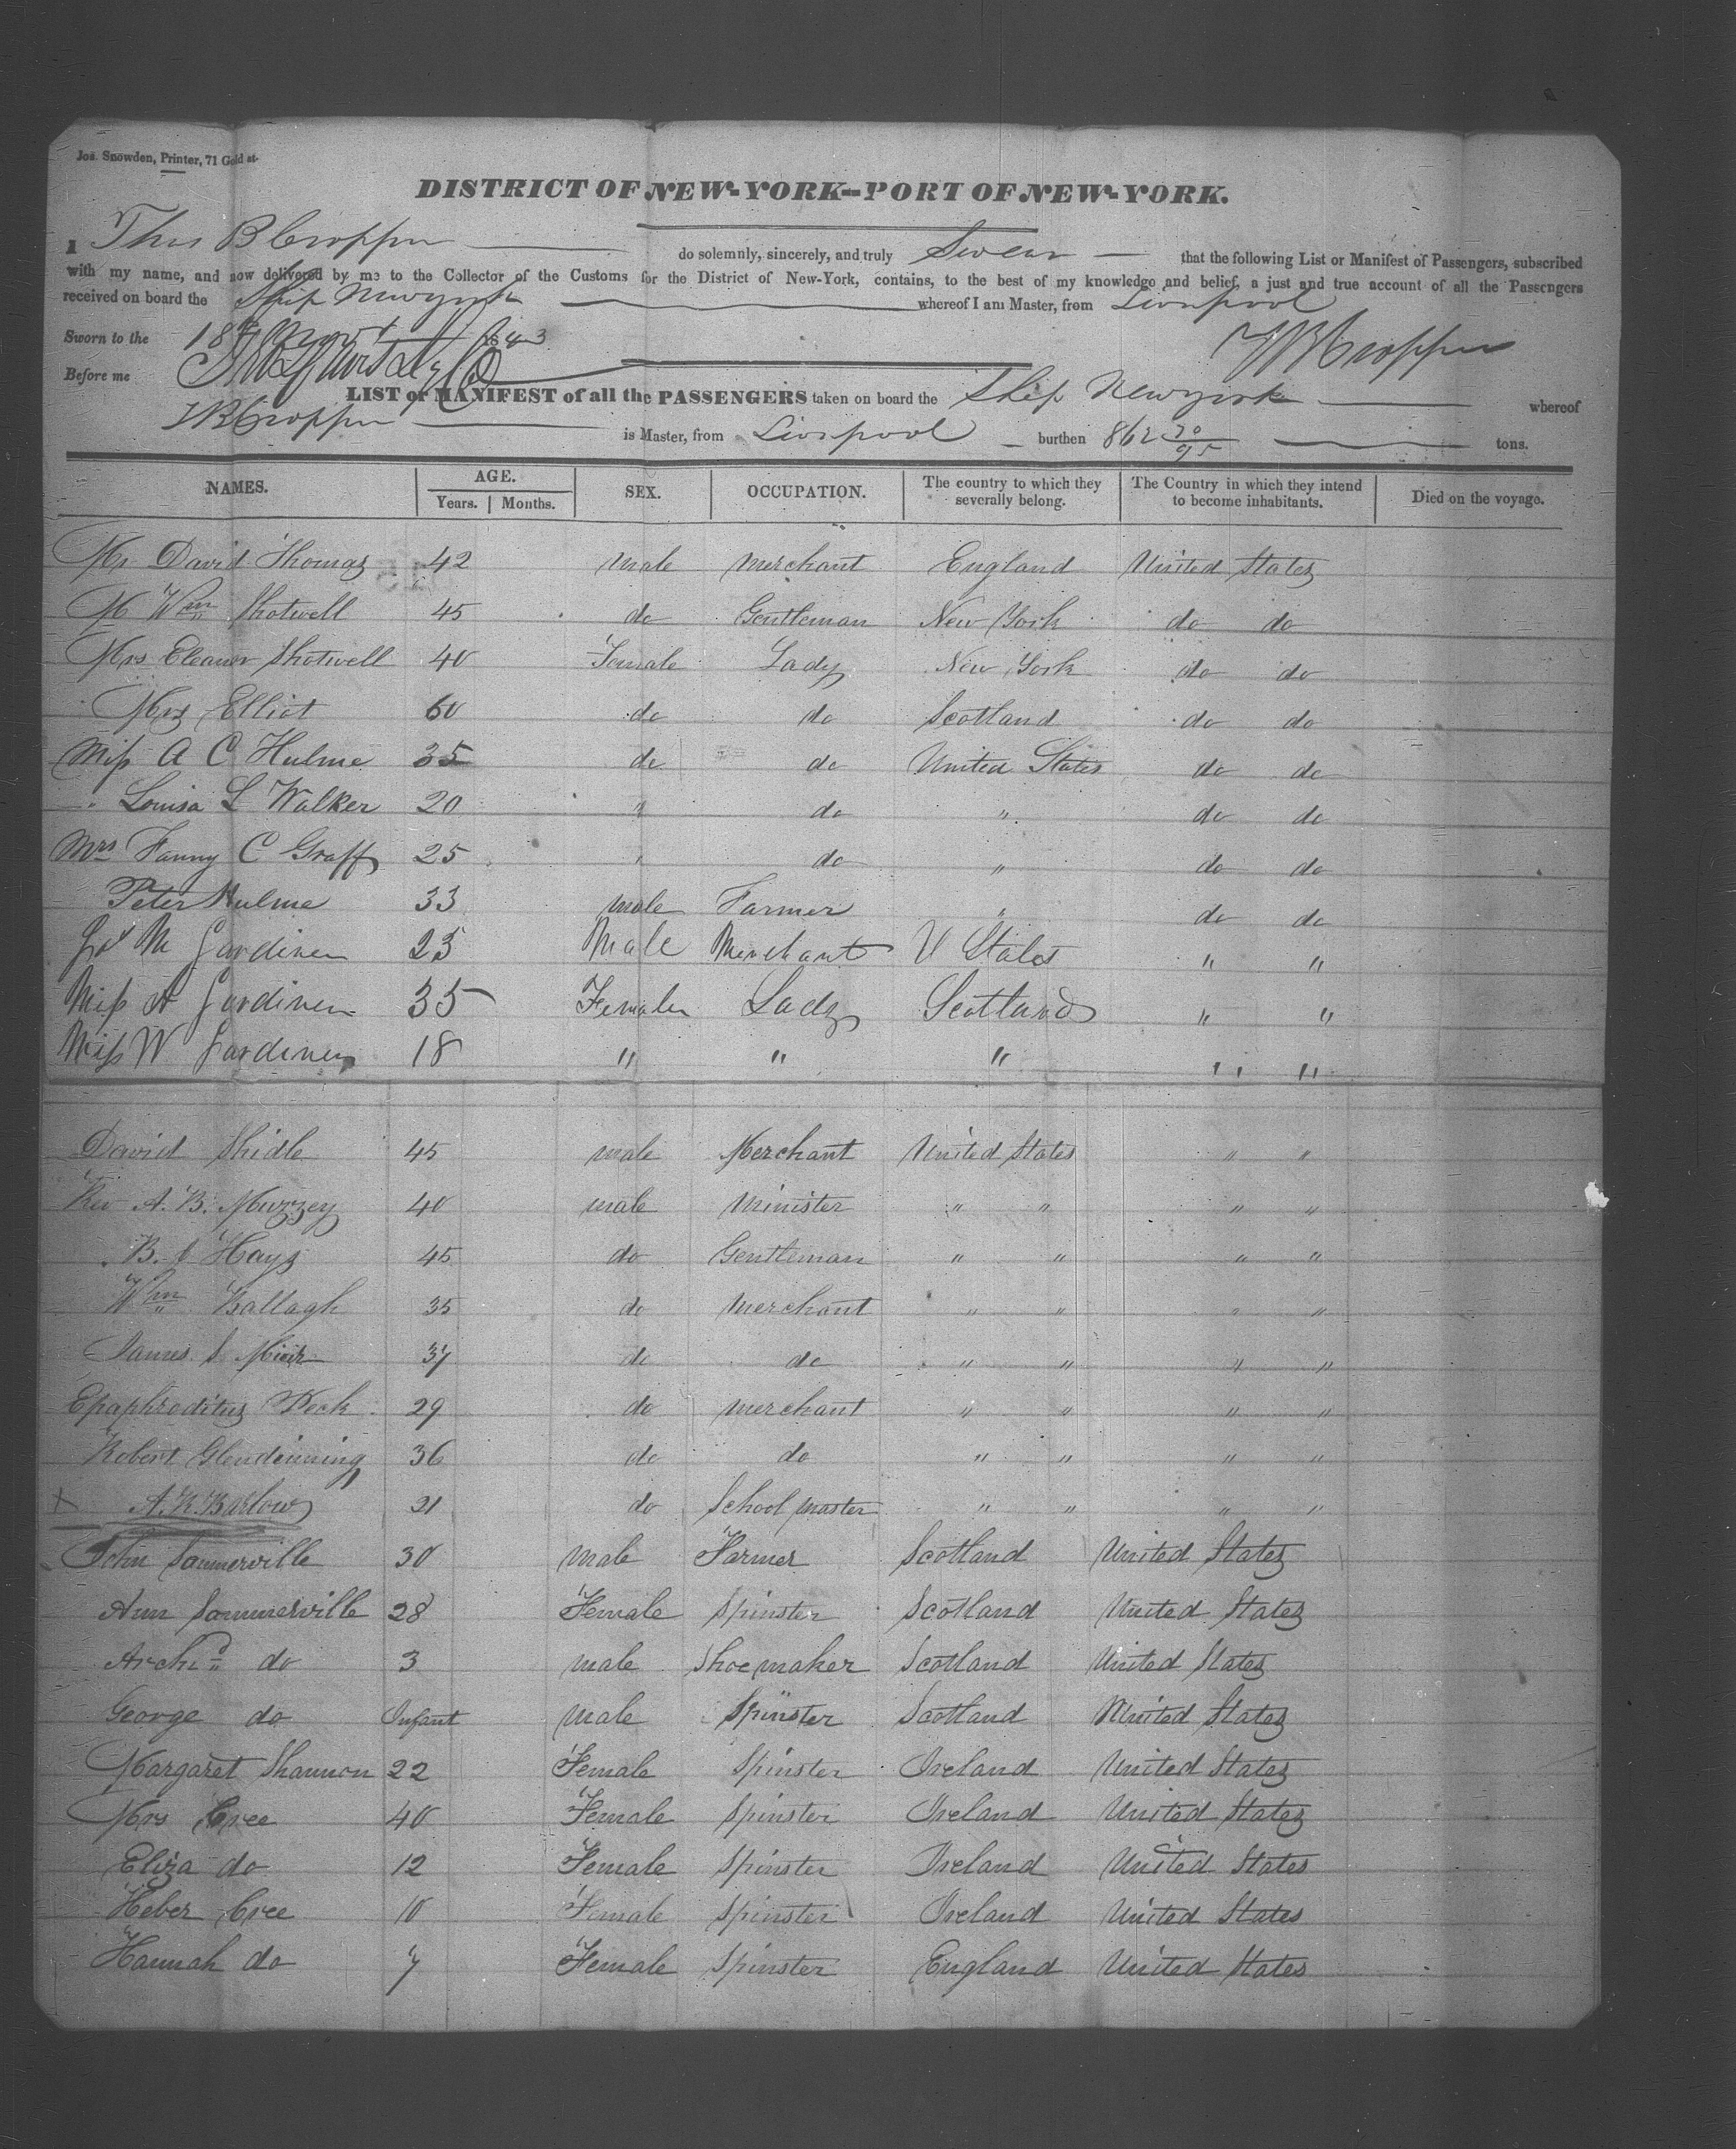 Jos. Snowden, Printer, 71 Gold st.
DISTRICT OF NEW-YORK—PORT OF NEW-YORK.
I Thos B Cropper do solemnly, sincerely, and truly Swear that the following List or Manifest of Passengers, subscribed
with my name, and now delivered by me to the Collector of the Customs for the District of New-York, contains, to the best of my knowledge and belief, a just and true account of all the Passengers
received on board the Ship Newyork whereof I am Master, from Liverpool
Sworn to the 18th 1843 T B Cropper
Before me
LIST or MANIFEST of all the PASSENGERS taken on board the Ship Newyork whereof
T B Cropper is Master, from Liverpool burthen 862 30/95 tons.
NAMES. AGE. Years. Months. SEX. OCCUPATION. The country to which they severally belong. The Country in which they intend to become inhabitants. Died on the voyage.
Mr David Thomas 42 male merchant England United States
Mr Wm Shotwell 45 do Gentleman New York do do
Mrs Eleanor Shotwell 40 Female Lady New York do do
Mrs Elliot 60 do do Scotland do do
Miss A C Hulme 35 do do United States do do
" Louisa L Walker 20 " do " do do
Mrs Fanny C Graff 25 " do " do do
Peter Hulme 33 male Farmer " do do
M Gardiner 25 Male Merchant U States " "
Miss A Gardiner 35 Female Lady Scotland " "
Miss W Gardiner 18 " " " " "
David Shidle 45 male Merchant United States " "
Rev A. B. Muzzey 40 male Minister " " " "
B. I Hays 45 do Gentleman " " " "
Wm Ballagh 35 do merchant " " " "
James S Muir 37 do do " " " "
Epaphroditus Peck 29 do merchant " " " "
Robert Glendinning 36 do do " " " "
X A. K. Barlow 21 do School master " " " "
John Sommerville 30 male Farmer Scotland United States
Ann Sommerville 28 Female Spinster Scotland United States
Archid do 3 male Shoemaker Scotland United States
George do Infant male Spinster Scotland United States
Margaret Shannon 22 Female Spinster Ireland United States
Mrs Cree 40 Female Spinster Ireland United States
Eliza do 12 Female Spinster Ireland United States
Heber Cree 10 Female Spinster Ireland United States
Hannah do 7 Female Spinster England United States